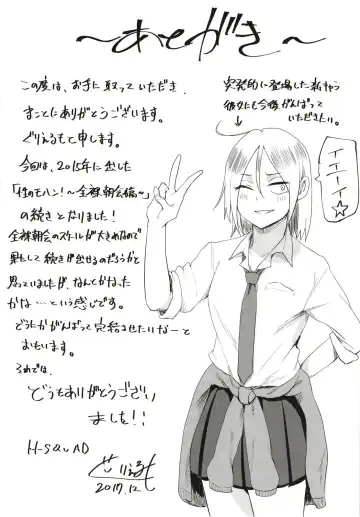 ～あとがき～
この度は、お手に取っていただき
まことにありがとうございます。
ぐりえるもと申します。
今回は、2015年に出した
「性のモハン!～全裸朝会編～」
の続きとなりました!
全裸朝会のスケールが大きめなので
果たして続きが出せるのだろうかと
思っていましたが、なんとかなった
かな…という感じです。
どうにかがんばって完結させたいなーと
おもいます。
それでは、
どうもありがとうござい
ました!!
H-SQUAD
ぐりえるも
2017.12
突発的に登場した
彼女にも今後がんばって
いただきたい。
イエーイ☆